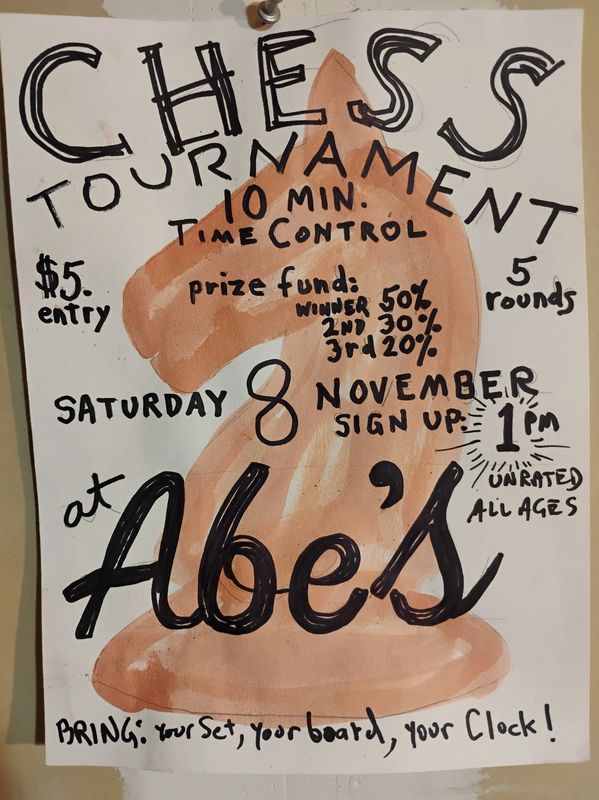 CHESS
TOURNAMENT
10 MIN.
TIME CONTROL
$5.
entry
prize fund:
WINNER 50%
2ND 30%
3rd 20%
5
rounds
SATURDAY 8 NOVEMBER
SIGN UP: 1 PM
UNRATED
ALL AGES
at Abe's
BRING: your Set, your board, your Clock!